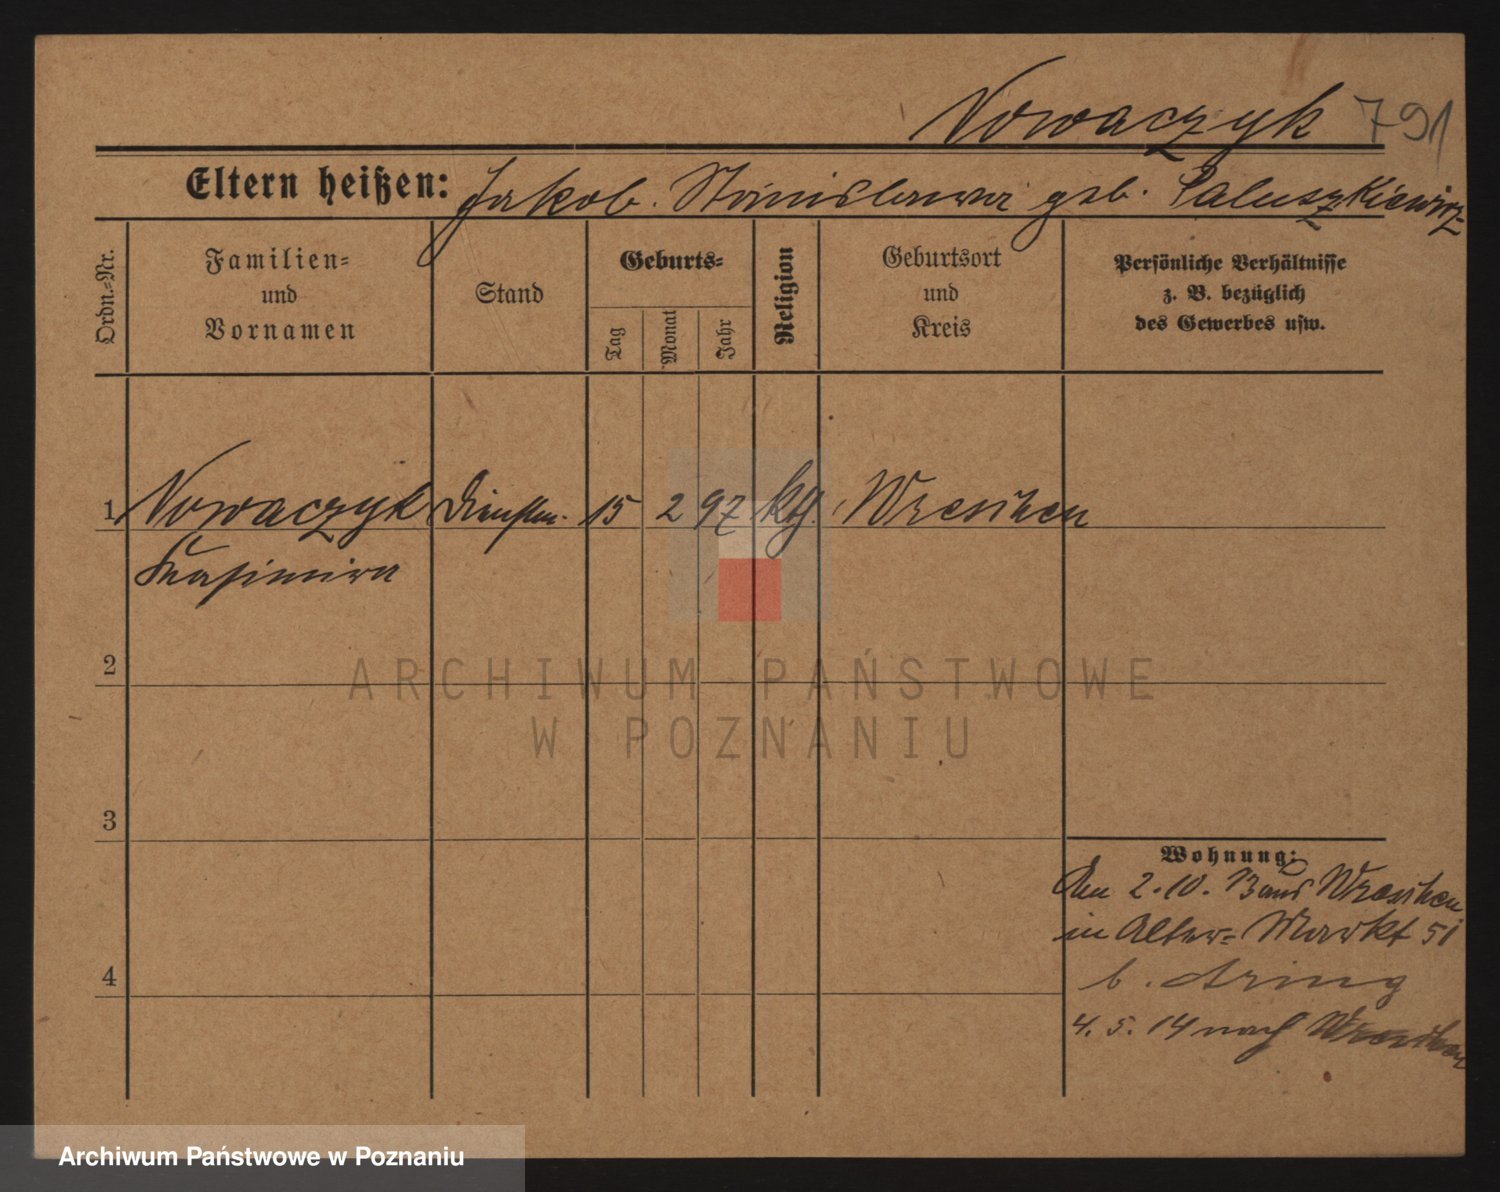 Nowaczyk 791
Eltern heißen: Jakob. Stanislawa geb. Paluszkiewicz
Ordn.-Nr.
Familien-
und
Vornamen
Stand
Geburts-
Tag
Monat
Jahr
Religion
Geburtsort
und
Kreis
Persönliche Verhältnisse
z. B. bezüglich
des Gewerbes usw.
1 Nowaczyk Dienstm. 15 2 97 kth. Wreschen
Kasimira
2
3
4
Wohnung:
Am 2.10.13 aus Wreschen
in Alter-Markt 51
b.
4.5.14 nach Wreschen
ARCHIWUM PAŃSTWOWE
W POZNANIU
Archiwum Państwowe w Poznaniu